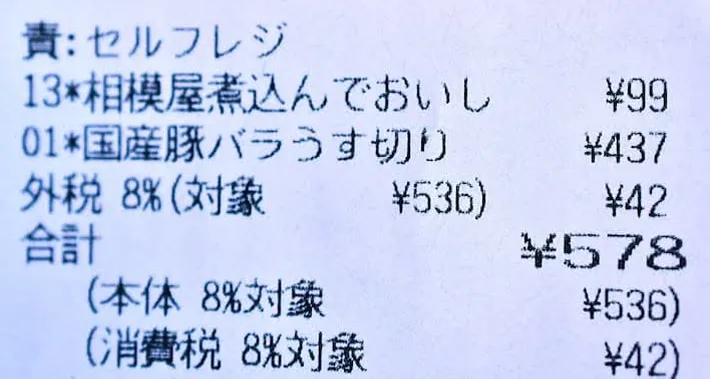 責:セルフレジ
13*相模屋煮込んでおいし ¥99
01*国産豚バラうす切り ¥437
外税 8%(対象 ¥536) ¥42
合計 ¥578
(本体 8%対象 ¥536)
(消費税 8%対象 ¥42)